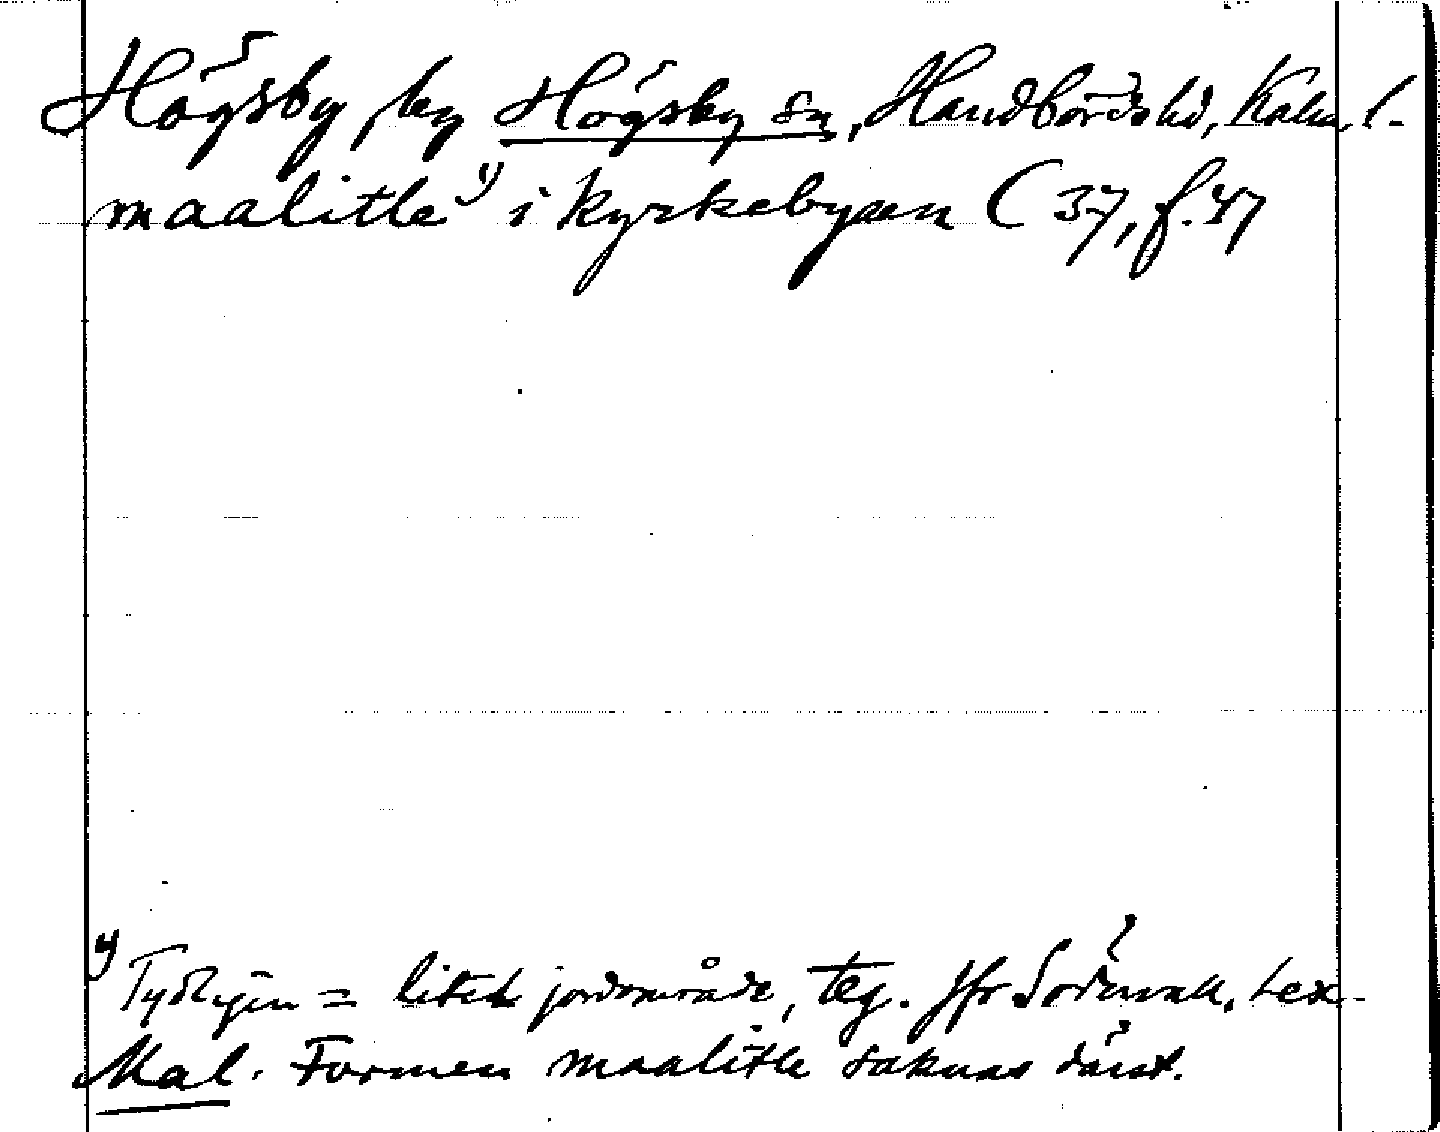 Högsby, by Högsby sn, Handbörds hd, Kalm. l.
maalitle ¹⁾ i kyrkebysen (37, f. 47
¹⁾ Tydligen = litet jordområde, teg. Jfr Söderwall, Lex.
Mal. Formen maalitle saknas därst.